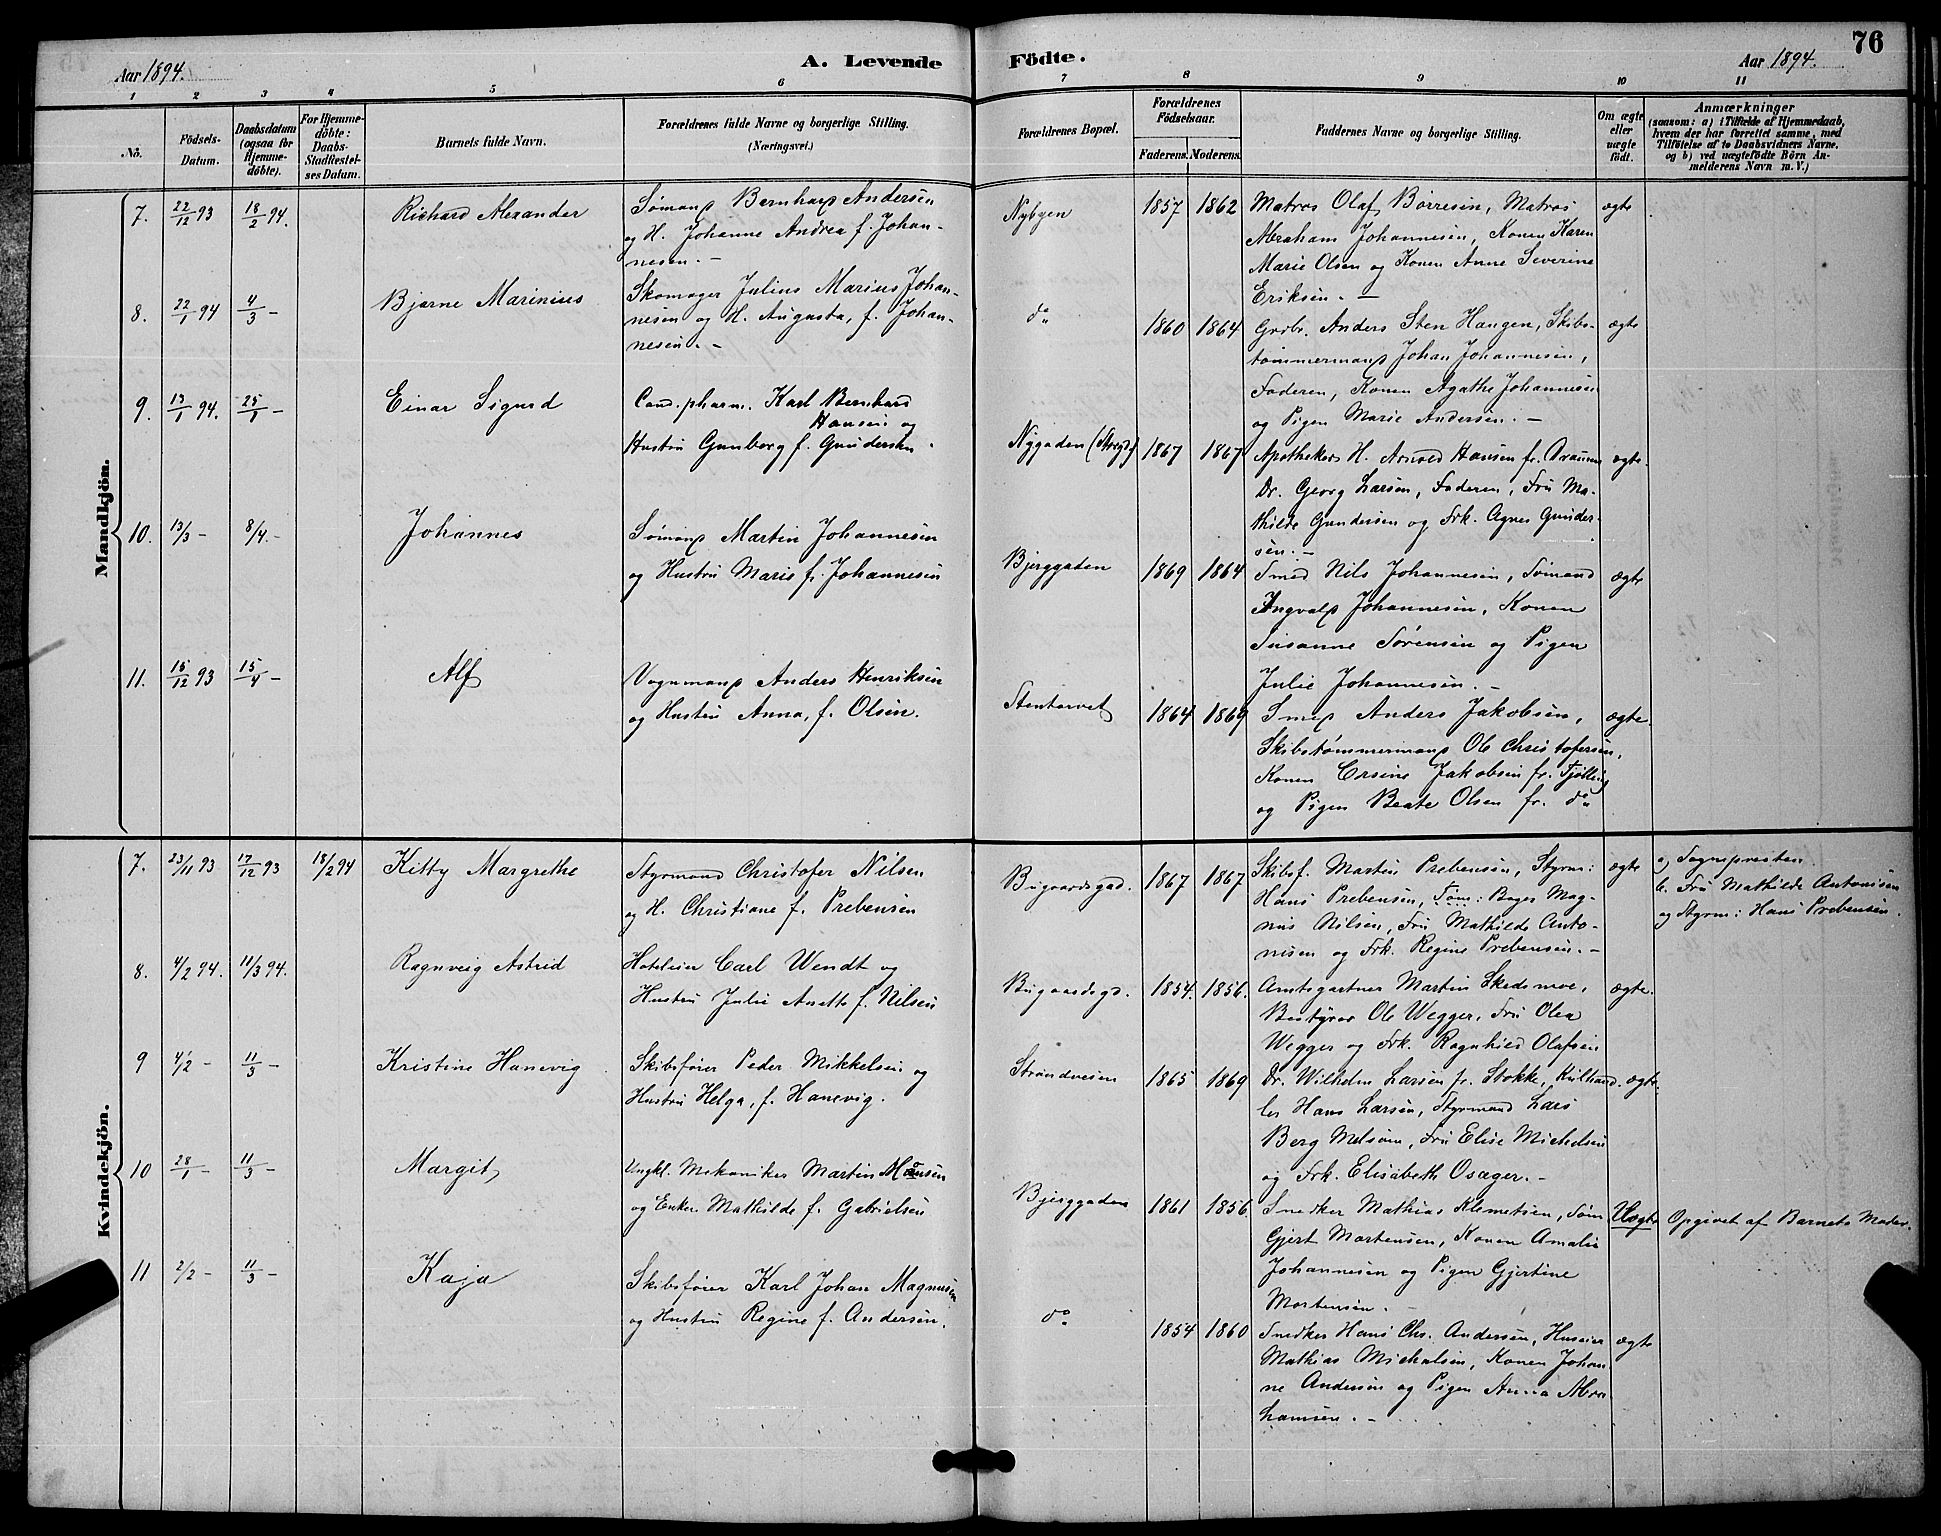 76
Aar 1894.
A. Levende
Födte.
Aar 1894.
1 2 3 4 5 6 7 8 9 10 11
No.
Födsels-
Datum.
Daabsdatum
(ogsaa for
Hjemme-
döbte).
For Hjemme-
döbte:
Daabs-
Stadfæstel-
ses Datum.
Barnets fulde Navn.
Forældrenes fulde Navne og borgerlige Stilling.
(Næringsvei.)
Forældrenes Bopæl.
Forældrenes
Födselsaar.
Faderens. Moderens.
Faddernes Navne og borgerlige Stilling.
Om ægte
eller
uægte
født.
Anmærkninger
(saasom: a) i Tilfælde af Hjemmedaab,
hvem der har forrettet samme, med
Tilföielse af to Daabsvidners Navne,
og b) ved uægtefödte Börn An-
melderens Navn m.V.)
Mandkjön.
7. 22/12 93 18/2 94. Richard Alexander
Sømand Bernhard Andersen
og H. Johanne Andrea f. Johan-
nesen. -
Nybyen 1857 1862
Matros Olaf Børresen, Matros
Abraham Johannesen, Konen Karen
Marie Olsen og Konen Anne Severine
Eriksen. -
ægte
8. 22/1 94 4/3 - Bjarne Marinius
Skomager Julius Marius Johan-
nesen og H. Augusta, f. Johan-
nesen. -
do 1860 1864
Grbr. Anders Sten Haugen, Skibs-
tømmermand Johan Johannesen,
Faderen, Konen Agathe Johannesen
og Pigen Marie Andersen. -
ægte
9. 13/1 94. 25/1 - Einar Sigurd
Cand. pharm. Karl Bernhard
Hansen og
Hustru Gunborg f. Gundersen.
Nygaden (Storgd) 1867 1867
Apotheker H. Arnold Hansen fr.
Dr. Georg Larsen, Faderen, Fru Ma-
thilde Gundersen og Frk. Agnes Gunder-
sen. -
ægte.
10. 13/3 - 8/4. - Johannes
Sømand Martin Johannesen
og Hustru Marie f. Johannesen
Bjerggaden 1869 1864
Smed Nils Johannesen, Sømand
Ingvald Johannesen, Konen
Susanne Sørensen og Pigen
Julie Johannesen. -
ægte
11. 15/12 93 15/4 - Alf
Vognmand Anders Henriksen
og Hustru Anna, f. Olsen.
Stentorvet 1864 1869
Smed Anders Jakobsen,
Skibstømmermand Ole Christofersen,
Konen Orsine Jakobsen fr. Tjølling
og Pigen Beate Olsen fr. do
ægte.
Kvindekjön.
7. 23/11 93 17/12 93 18/2 94 Kitty Margrethe
Styrmand Christofer Nilsen
og H. Christiane f. Prebensen
Bugaardsgad. 1867 1867
Skibsf. Martin Prebensen, Styrm:
Hans Prebensen, Tøm: Bager Mag-
nus Nilsen, Fru Mathilde Anto-
nisen og Frk. Regine Prebensen. -
ægte
a, Sognepresten.
b. Fru Mathilde Antonisen
og Styrm: Hans Prebensen.
8. 4/2 94. 11/3 94. Ragnveig Astrid
Hoteleier Carl Wendt og
Hustru Julie Anette f. Nilsen
Bugaardsgd. 1854. 1856.
Amtsgartner Martin Skedsmoe,
Bestyrer Ole Wegger, Fru Olea
Wegger og Frk. Ragnhild Olafsen
ægte.
9 4/2 - 11/3 - Kristine Hanevig
Skibsfører Peder Mikkelsen og
Hustru Helga, f. Hanevig.
Strandveien 1865 1869
Dr. Wilhelm Larsen fr. Stokke, Kulhand-
ler Hans Larsen, Styrmand Lars
Berg Melsom, Fru Elise Michelsen
og Frk. Elisabeth Osæger. -
ægte.
10 28/1 - 11/3 - Margit
Ungkl. Mekaniker Martin Hansen
og Enken Mathilde f. Gabrielsen
Bjerggaden 1861 1856
Snedker Mathias Klemetsen, Søm
Gjert Mortensen, Konen Amalie
Johannesen og Pigen Gjertine
Mortensen. -
Uægte Opgivet af Barnets Moder.
11 2/2 - 11/3 - Kaja
Skibsfører Karl Johan Magnusen
og Hustru Regine f. Andersen.
do 1854 1860
Snedker Hans Chr. Andersen, Huseier
Mathias Michalsen, Konen Johan
ne Andersen og Pigen Anna Abra
hamsen. -
ægte